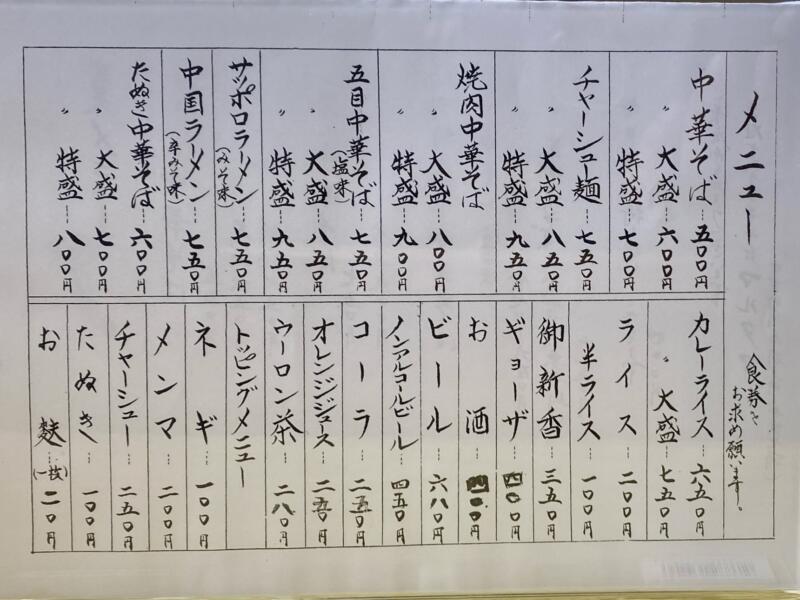 メニュー
食券を
お求め願います。
中華そば…五〇〇円
〃 大盛…六〇〇円
〃 特盛…七〇〇円
チャーシュー麺…七五〇円
〃 大盛…八五〇円
〃 特盛…九五〇円
焼肉中華そば
〃 大盛…八〇〇円
〃 特盛…九〇〇円
五目中華そば…七五〇円
(塩味)
〃 大盛…八五〇円
〃 特盛…九五〇円
サッポロラーメン…七五〇円
(みそ味)
中国ラーメン…七五〇円
(辛みそ味)
たぬき中華そば…六〇〇円
〃 大盛…七〇〇円
〃 特盛…八〇〇円
カレーライス…六五〇円
〃 大盛…七五〇円
ライス…二〇〇円
半ライス…一〇〇円
御新香…三五〇円
ギョーザ…四〇〇円
お酒…四〇〇円
ビール…六八〇円
ノンアルコールビール…四五〇円
コーラ…二五〇円
オレンジジュース…二五〇円
ウーロン茶…二八〇円
トッピングメニュー
ネギ…一〇〇円
メンマ…二〇〇円
チャーシュー…二五〇円
たぬき…一〇〇円
お麩…(一枚)二〇円